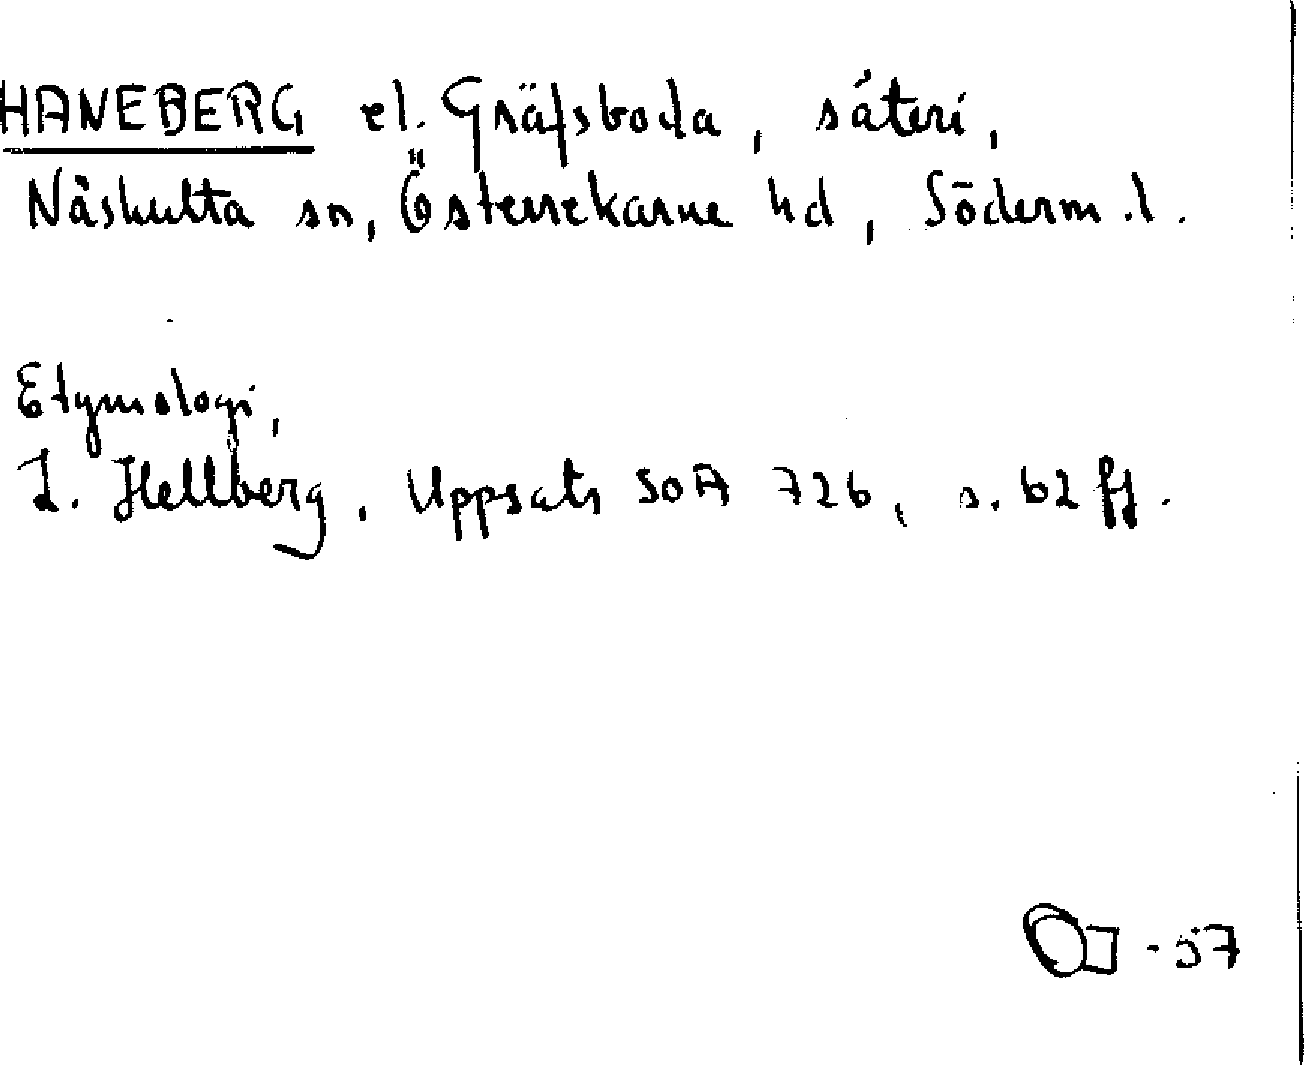 HANEBERG el. Gräfsboda, säteri,
Näshulta sn, Österrekarne hd, Söderm. l.
Etymologi,
L. Hellberg, Uppsats SOA 726, s. 62 ff.
-57